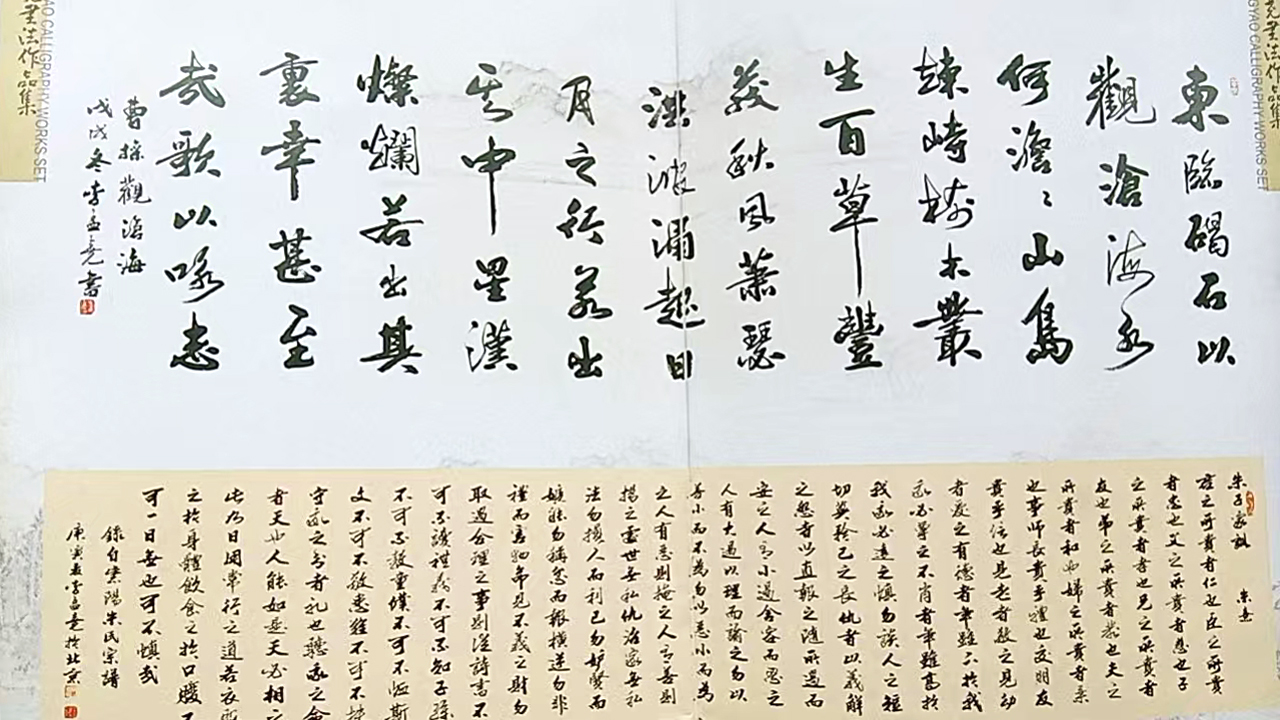 尧書法作品集
GYAO CALLIGRAPHY WORKS SET
東臨碣石以
觀滄海水
何澹〻山島
竦峙樹木叢
生百草豐
茂秋風蕭瑟
洪波涌起日
月之行若出
其中星漢
燦爛若出其
裏幸甚至
哉歌以咏志
曹操觀滄海
戊戌冬李孟尧書
書法作品集
AO CALLIGRAPHY WORKS SET
朱子家訓 朱熹
君之所貴者仁也臣之所貴
者忠也父之所貴者慈也子
之所貴者孝也兄之所貴者
友也弟之所貴者恭也夫之
所貴者和也婦之所貴者柔
也事師長貴乎禮也交朋友
貴乎信也見老者敬之見幼
者愛之有德者年雖下於我
我必尊之不肖者年雖高於
我我必遠之慎勿談人之短
切莫矜己之長仇者以義解
之怨者以直報之隨所遇而
安之人有小過含容而忍之
人有大過以理而諭之勿以
善小而不為勿以惡小而為
之人有惡則掩之人有善則
揚之處世無私仇治家無私
法勿損人而利己勿妒賢而
嫉能勿稱忿而報橫逆勿非
禮而害物命見不義之財勿
取遇合理之事則從詩書不
可不讀禮義不可不知子孫
不可不教童僕不可不恤斯
文不可不敬患難不可不扶
守我之分者礼也聽我之命
者天也人能如是天必相之
此乃日用常行之道若衣服
之於身體飲食之於口腹不
可一日無也可不慎哉
錄自紫陽朱氏宗譜
庚寅夏李孟尧於北京